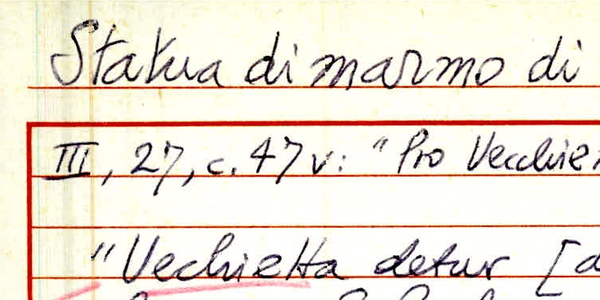 Statua di marmo di
III, 27, c. 47 v: "Pro Vecchie
"Vechietta detur [d